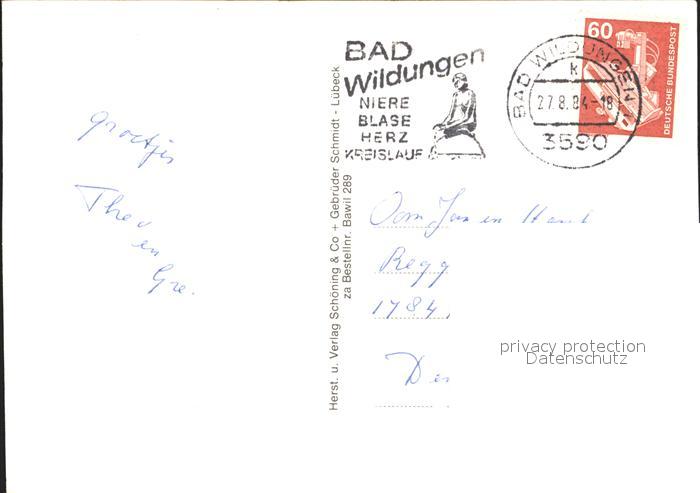 BAD
Wildungen
NIERE
BLASE
HERZ
KREISLAUF
BAD WILDUNGEN
k
27.8.84-18
3590
60
DEUTSCHE BUNDESPOST
groetjes
Theo
en
Gre.
Herst. u. Verlag Schöning & Co + Gebrüder Schmidt - Lübeck
za Bestellnr. Bawil 289
Oom Jan en
1784,
privacy protection
Datenschutz